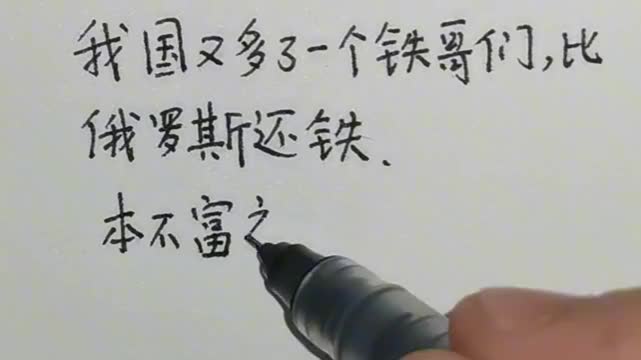 我国又多了一个铁哥们,比
俄罗斯还铁.
本不富